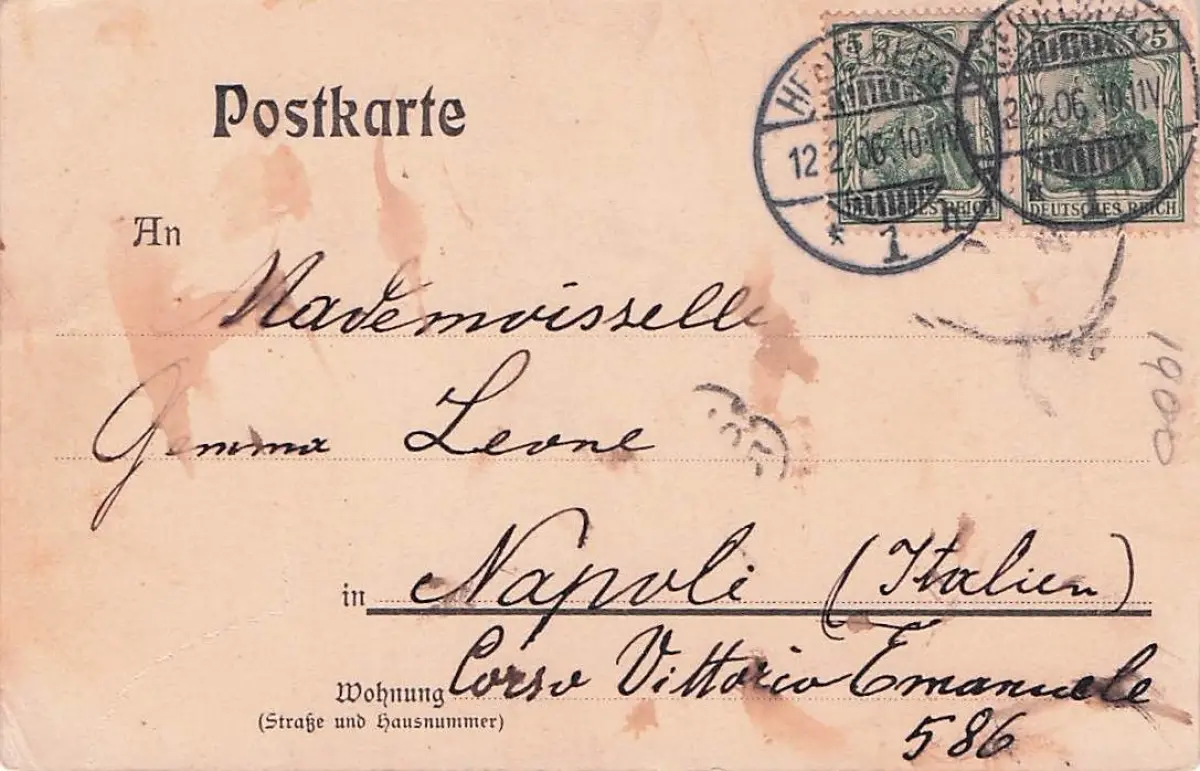 Postkarte
5 5
HEIDELBERG
12.2.06.10-11V.
* 1 h
HEIDELBERG
12.2.06.10-11V.
* 1
DEUTSCHES REICH
DEUTSCHES REICH
An
Mademoisselle
Gemma Leone
1900
in Napoli (Italien)
Wohnung Corso Vittorio Emanuele
(Straße und Hausnummer)
586